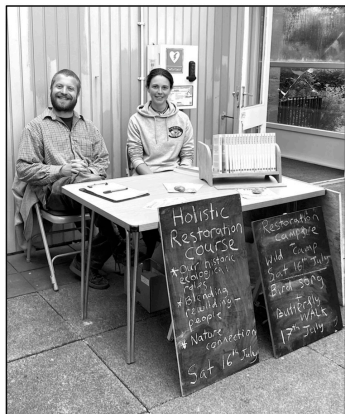 Holistic
Restoration
course
* Our historic
ecological
roles
* Blending
rewilding -
people
* Nature
connection
Sat 16th July
Restoration
campfire
-
Wild Camp
Sat 16th July
Bird song
-
Butterfly
WALK
17th July